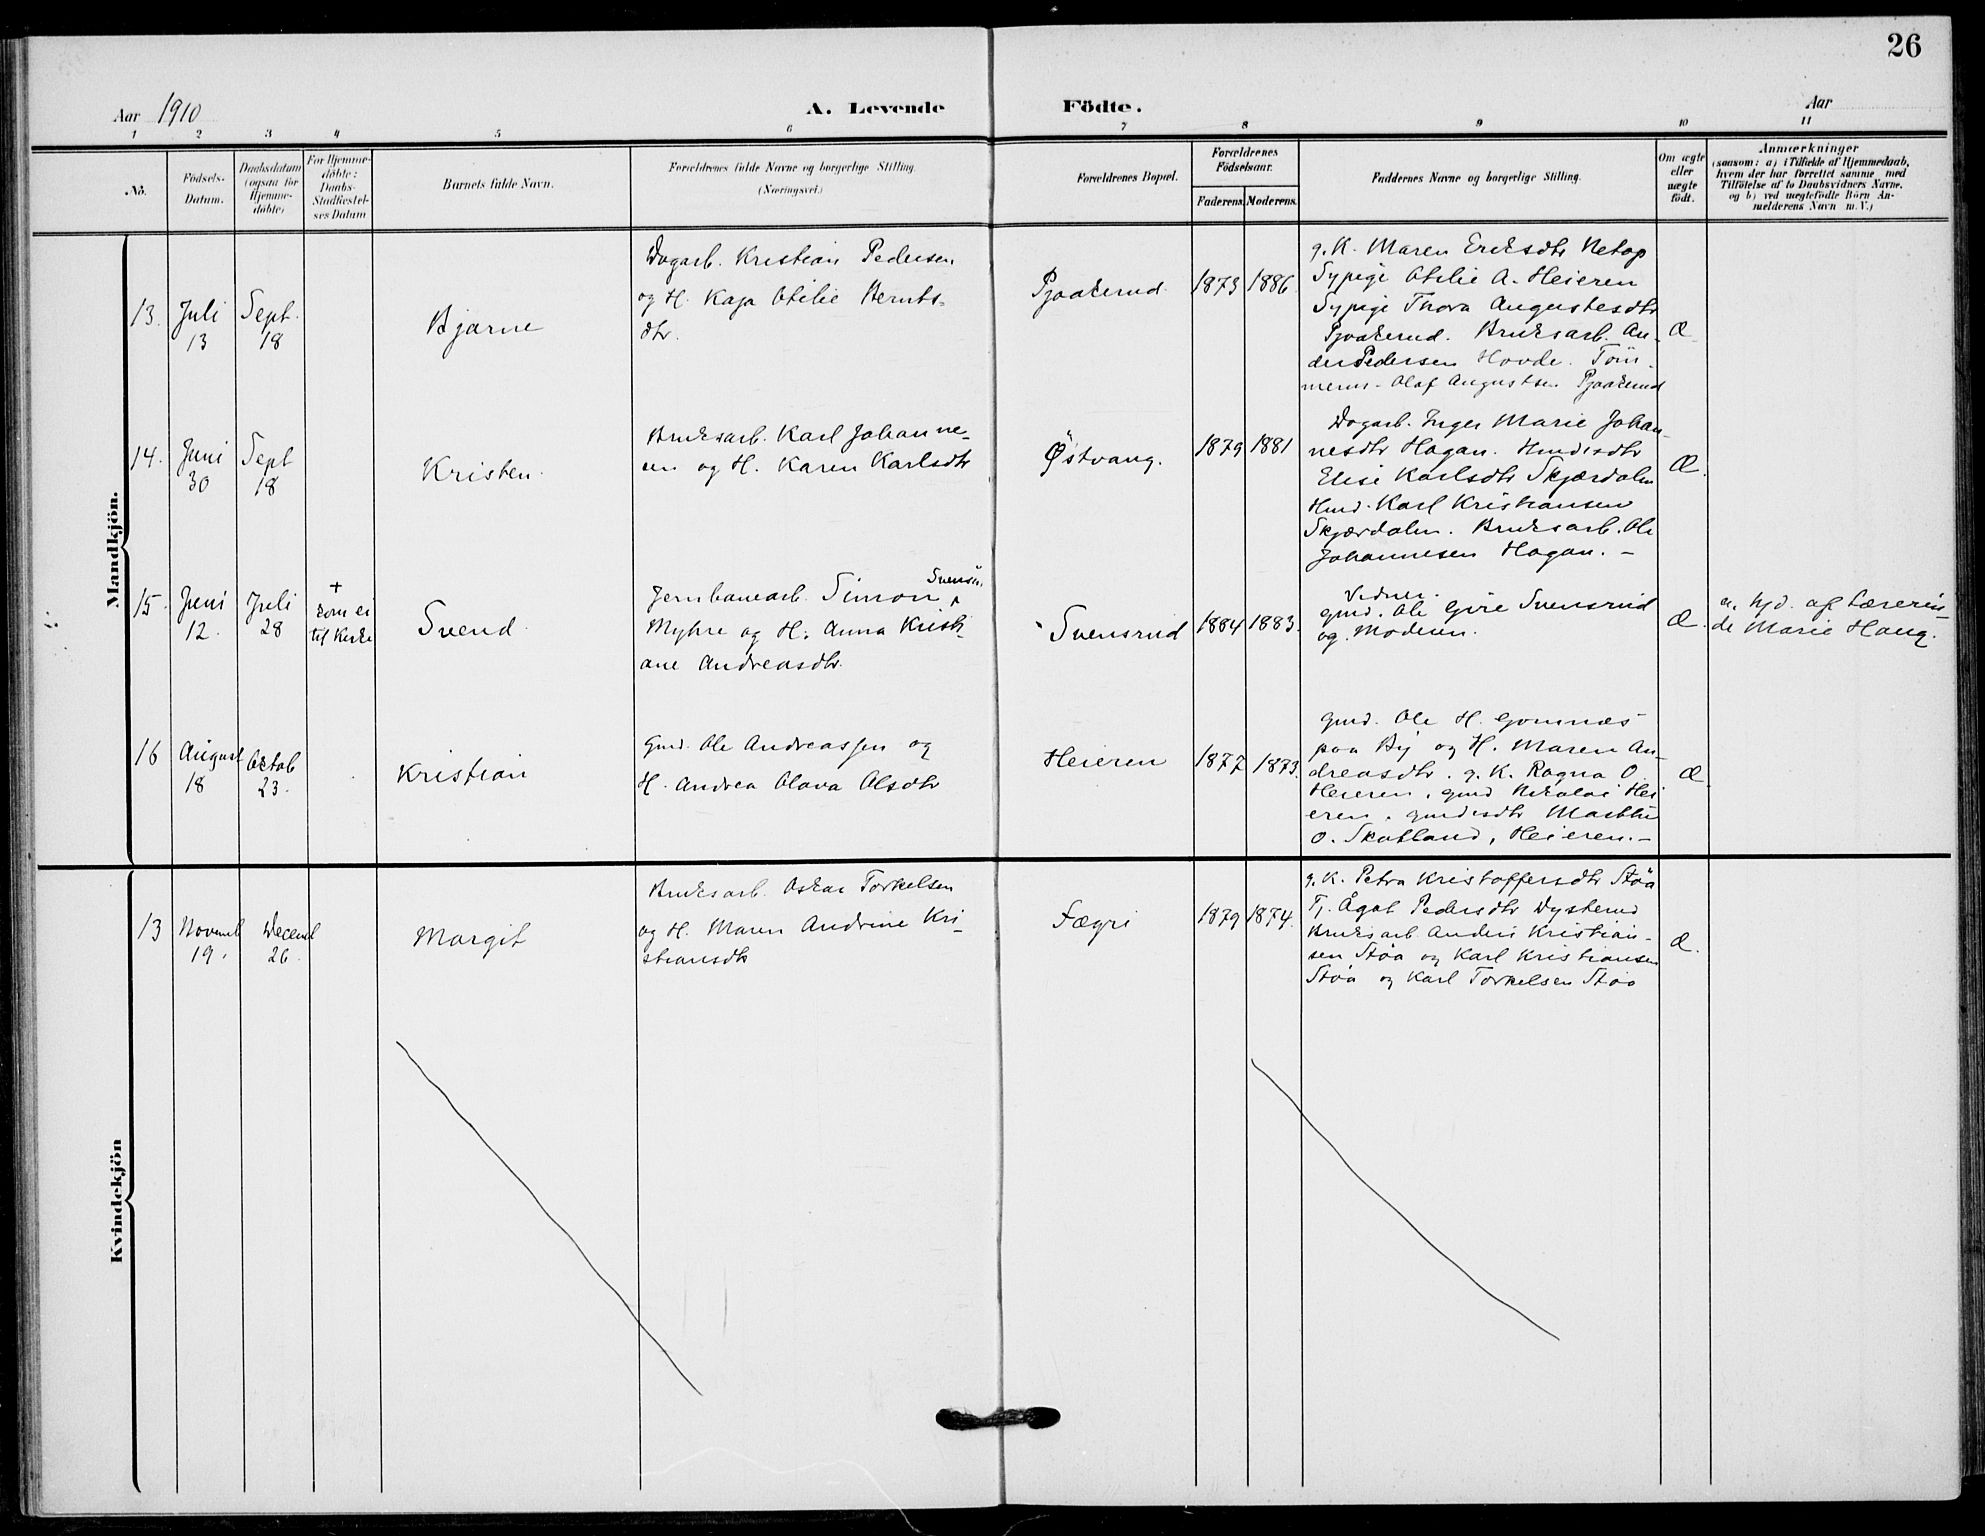 26
Aar 1910
A. Levende
Födte.
Aar
1 2 3 4 5 6 7 8 9 10 11
No.
Födsels-
Datum.
Daabsdatum
(ogsaa för
Hjemme-
döbte)
For Hjemme-
döbte:
Daabs-
Stadfæstel-
ses Datum
Barnets fulde Navn.
Forældrenes fulde Navne og borgerlige Stilling.
(Næringsvei.)
Forældrenes Bopæl.
Forældrenes
Födselsaar.
Faderens.
Moderens.
Faddernes Navne og borgerlige Stilling.
Om ægte
eller
uægte
födt.
Anmærkninger
(saasom: a) i Tilfælde af Hjemmedaab,
hvem der har forrettet samme med
Tilföielse af to Daabsvidners Navne,
og b) ved uægtefödte Börn An-
melderens Navn m. V.)
Mandkjön.
13.
Juli
13
Sept.
18
Bjarne
Dagarb. Kristian Pedersen
og H. Kaja Otilie Bernts-
dtr.
Pjaakerud
1873
1886
g. K. Maren Eriksdtr Retop
Sypige Otilie A. Heieren
Sypige Thora Augustesdtr
Pjaakerud. Bruksarb. An-
ders Pedersen Hovde. Töm-
merm. Olaf Augustsen Pjaakerud
Æ
14.
Juni
30
Sept
18
Kristen.
Bruksarb. Karl Johanne-
sen og H. Karen Karlsdtr
Østvang.
1879
1881
Dagarb. Inger Marie Johan-
nesdtr Hagan. Husm.dtr
Elise Karlsdtr Skjærdalen
Husm. Karl Kristiansen
Skjærdalen. Bruksarb. Ole
Johannesen Hagan. –
Æ.
15.
Juni
12.
Juli
28
+
kom ei
til Kirke
Svend
Jernbanearb. Simon Svensen
Myhre og H. Anna Kristi-
ane Andreasdtr.
Svensrud
1884
1883.
Vidner.
gmd. Ole Gire Svensrud
og Moderen.
Æ.
a. hjd. af Lærerin-
de Marie Haug.
16
August
18
Oktob
23.
Kristian
Gmd. Ole Andreassen og
H. Andrea Olava Olsdtr
Heieren
1877
1873.
Gmd. Ole H. Gomnæs
paa By og H. Maren An-
dreasdtr. g. K. Ragna O.
Heieren, gmd Nikolai Hei-
eren. gmdsdtr Marthe
O. Skotland, Heieren. –
Æ.
Kvindekjön
13
Novemb
19.
Decemb
26.
Margit
Bruksarb. Oskar Torkelsen
og H. Maren Andrine Kri-
stiansdtr
Fægri
1879
1874.
g. K. Petra Kristoffersdtr Støa
Tj. Ågot Pedersdtr Dysterud
Bruksarb. Anders Kristian-
sen Støa og Karl Kristiansen
Støa og Karl Torkelsen Støa
Æ.